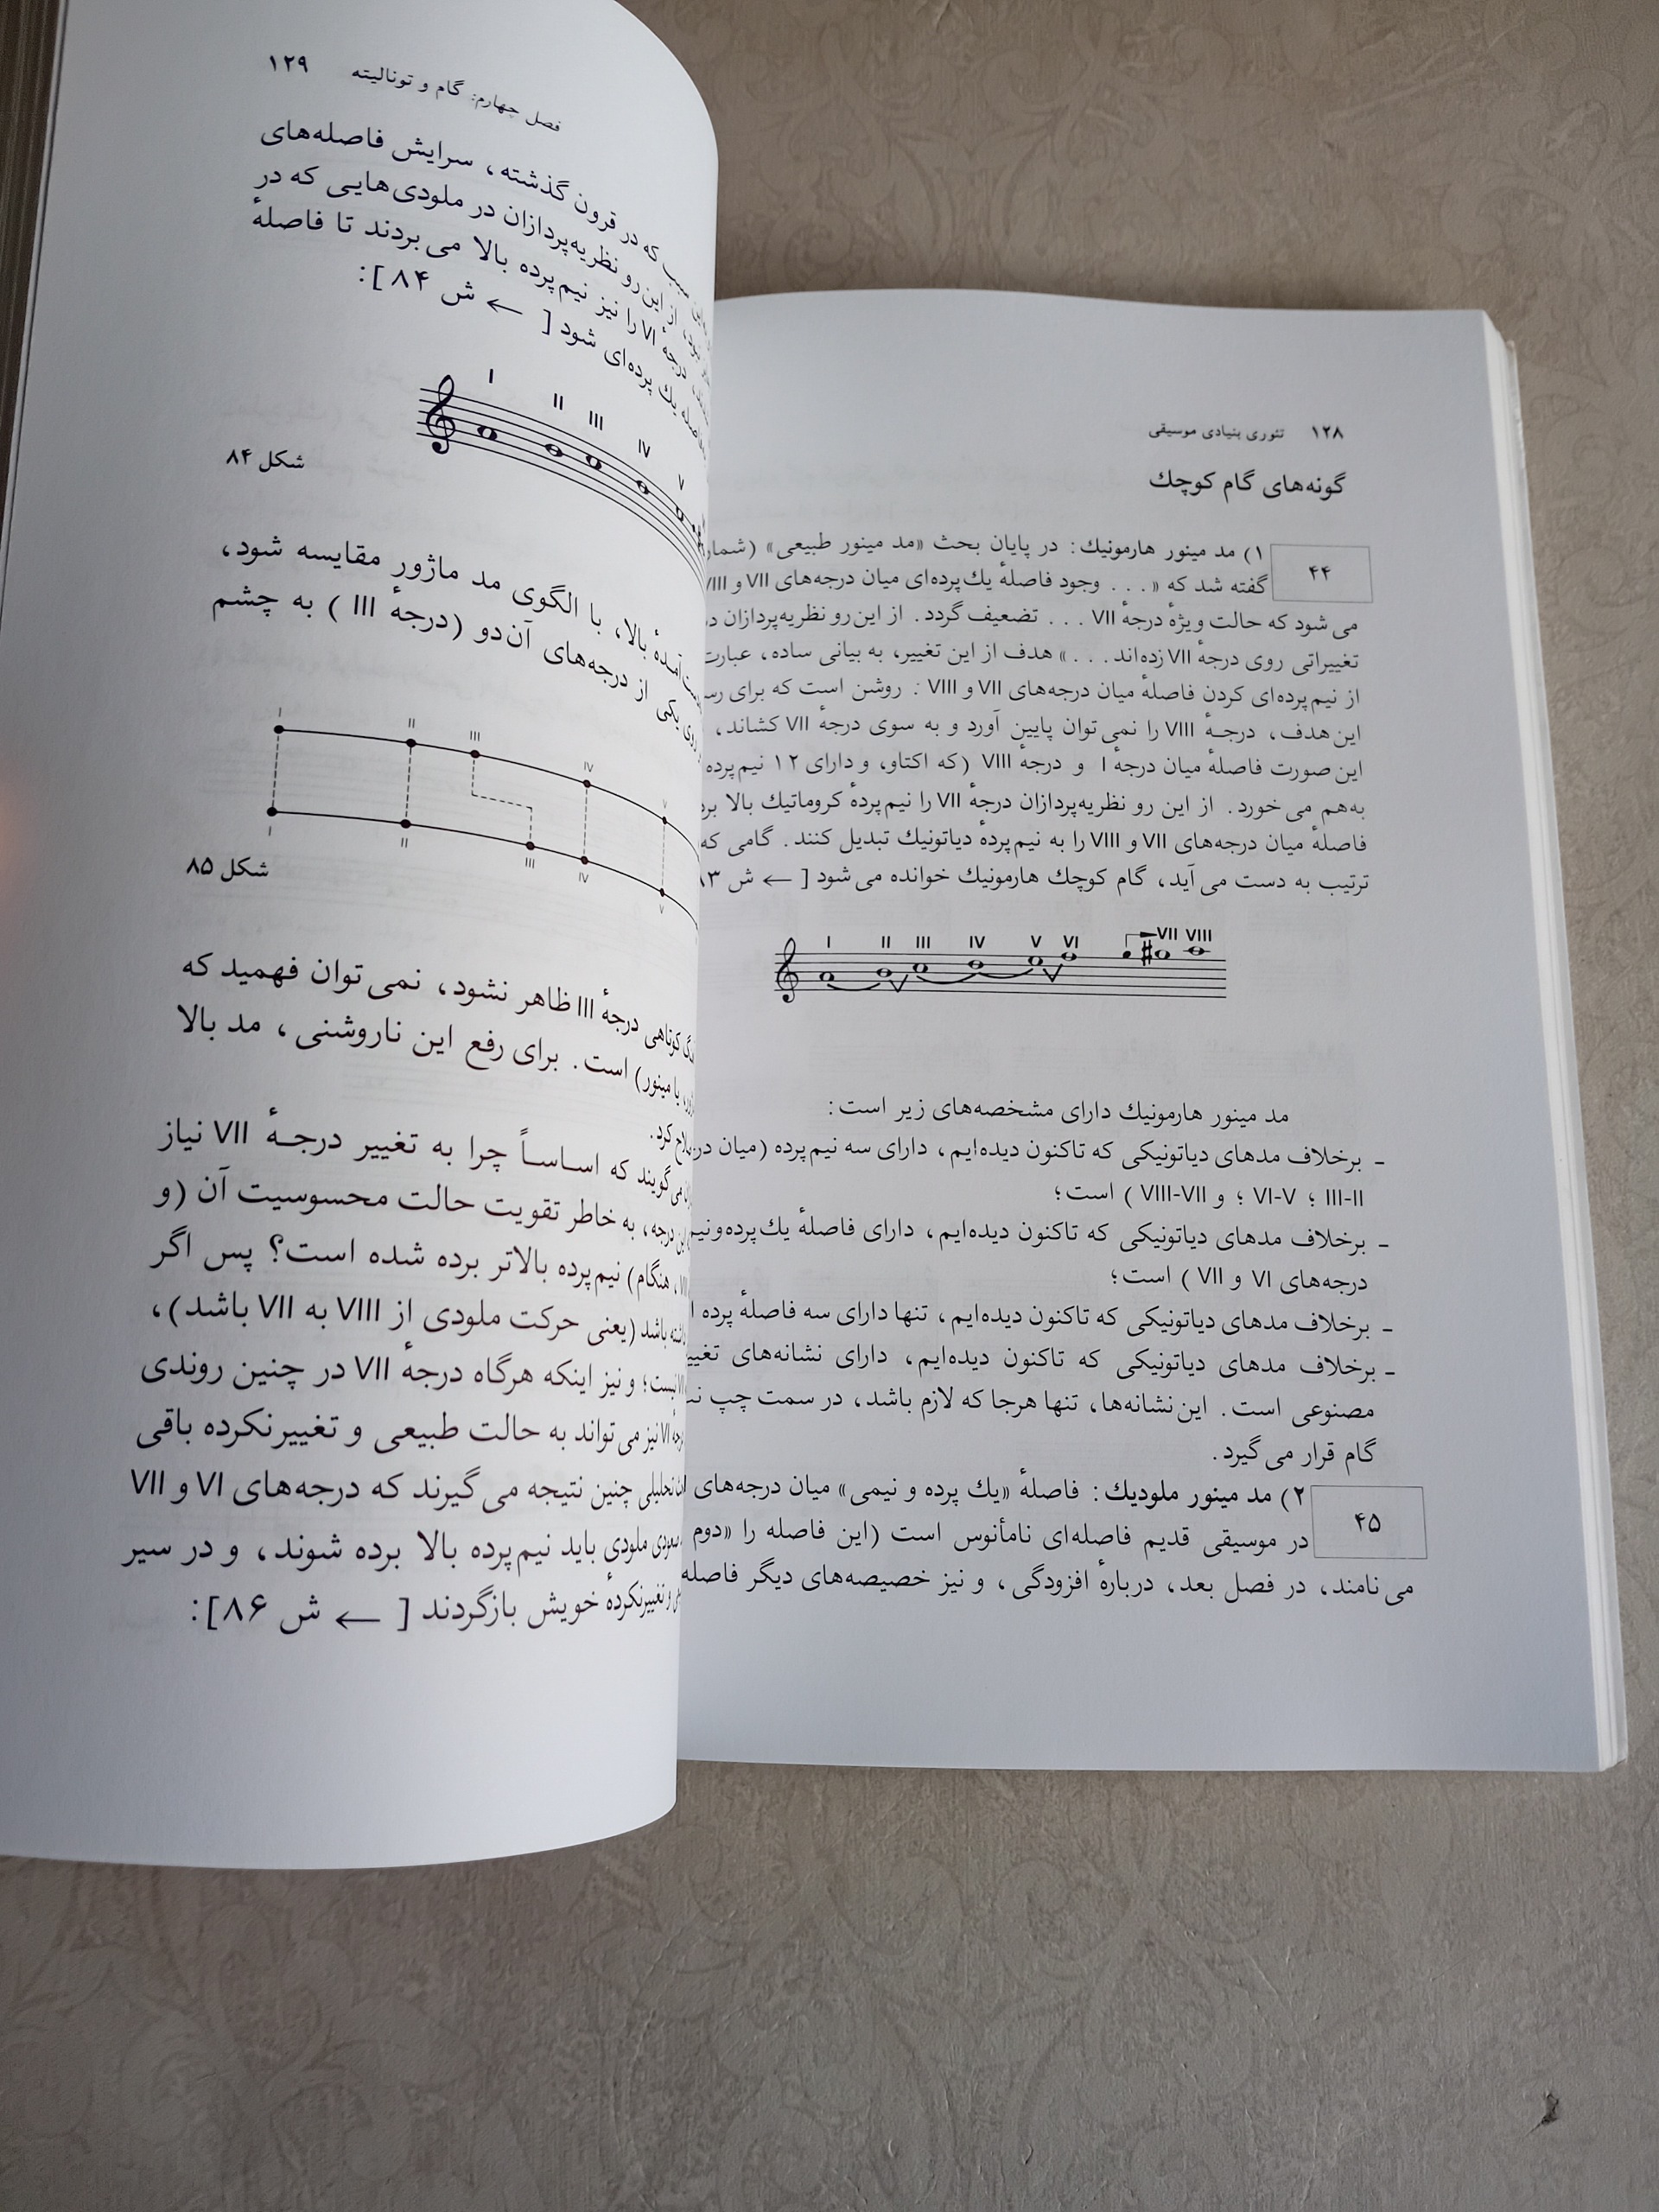 ۱۲۸ تئوری بنیادی موسیقی
گونه‌های گام کوچك
۴۴
۱) مد مینور هارمونیك: در پایان بحث «مد مینور طبیعی» (شمارۀ
گفته شد که «... وجود فاصلۀ یك‌پرده‌ای میان درجه‌های VII و VIII
می‌شود که حالت ویژۀ درجۀ VII ... تضعیف گردد. از این‌رو نظریه‌پردازان
تغییراتی روی درجۀ VII زده‌اند...» هدف از این تغییر، به بیانی ساده، عبارت
از نیم‌پرده‌ای کردن فاصلۀ میان درجه‌های VII و VIII: روشن است که برای
این هدف، درجۀ VIII را نمی‌توان پایین آورد و به سوی درجۀ VII کشاند،
این صورت فاصلۀ میان درجۀ I و درجۀ VIII (که اکتاو، و دارای ۱۲ نیم‌پرده
به‌هم می‌خورد. از این رو نظریه‌پردازان درجۀ VII را نیم‌پردۀ کروماتیك بالا
فاصلۀ میان درجه‌های VII و VIII را به نیم‌پردۀ دیاتونیك تبدیل کنند. گامی که
ترتیب به دست می‌آید، گام کوچك هارمونیك خوانده می‌شود [ ← ش
I II III IV V VI VII VIII
مد مینور هارمونیك دارای مشخصه‌های زیر است:
- برخلاف مدهای دیاتونیکی که تاکنون دیده‌ایم، دارای سه نیم‌پرده (میان
III-II ؛ VI-V ؛ و VIII-VII ) است؛
- برخلاف مدهای دیاتونیکی که تاکنون دیده‌ایم، دارای فاصلۀ یك‌پرده‌ونیم
درجه‌های VI و VII ) است؛
- برخلاف مدهای دیاتونیکی که تاکنون دیده‌ایم، تنها دارای سه فاصلۀ پرده
- برخلاف مدهای دیاتونیکی که تاکنون دیده‌ایم، دارای نشانه‌های
مصنوعی است. این نشانه‌ها، تنها هرجا که لازم باشد، در سمت چپ
گام قرار می‌گیرد.
۴۵
۲) مد مینور ملودیك: فاصلۀ «یك پرده و نیمی» میان درجه‌های
در موسیقی قدیم فاصله‌ای نامأنوس است (این فاصله را «دوم
می‌نامند، در فصل بعد، دربارۀ افزودگی، و نیز خصیصه‌های دیگر فاصله
فصل چهارم: گام و تونالیته ۱۲۹
که در قرون گذشته، سرایش فاصله‌های
از این رو نظریه‌پردازان در ملودی‌هایی که در
درجۀ VI را نیز نیم‌پرده بالا می‌بردند تا فاصلۀ
یك پرده‌ای شود [ ← ش ۸۴]:
I II III IV V
شکل ۸۴
بالا، با الگوی مد ماژور مقایسه شود،
یکی از درجه‌های آن‌دو (درجۀ III ) به چشم
I II III IV V
I II III IV V
شکل ۸۵
کوتاهی درجۀ III ظاهر نشود، نمی‌توان فهمید که
یا مینور) است. برای رفع این ناروشنی، مد بالا
کرد.
می‌گویند که اساساً چرا به تغییر درجۀ VII نیاز
درجه، به خاطر تقویت حالت محسوسیت آن (و
هنگام) نیم‌پرده بالاتر برده شده است؟ پس اگر
باشد (یعنی حرکت ملودی از VIII به VII باشد)،
نیست؛ و نیز اینکه هرگاه درجۀ VII در چنین روندی
VI نیز می‌تواند به حالت طبیعی و تغییرنکرده باقی
تحلیلی چنین نتیجه می‌گیرند که درجه‌های VI و VII
ملودی باید نیم‌پرده بالا برده شوند، و در سیر
و تغییرنکردۀ خویش بازگردند [ ← ش ۸۶]: